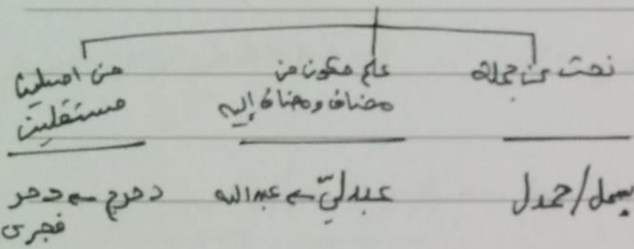 نحت من جملة
علم مكون من
مضاف ومضاف إليه
من اصليين
مستقلين
بسمل/حمدل
عبدليّ ← عبد الله
دحرج ← دحر
فجرى